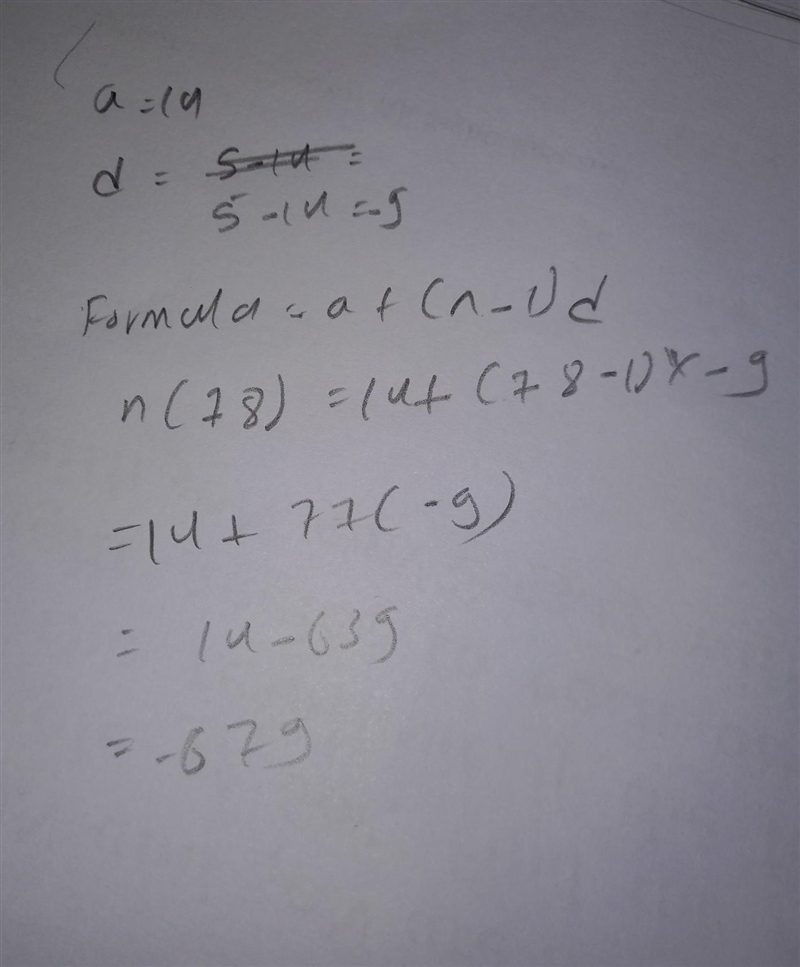 a = 14
d = 5-14 =
5 - 14 = -9
Formula = a + (n-1)d
n(78) = 14 + (78-1) x -9
= 14 + 77(-9)
= 14 - 639
= -679